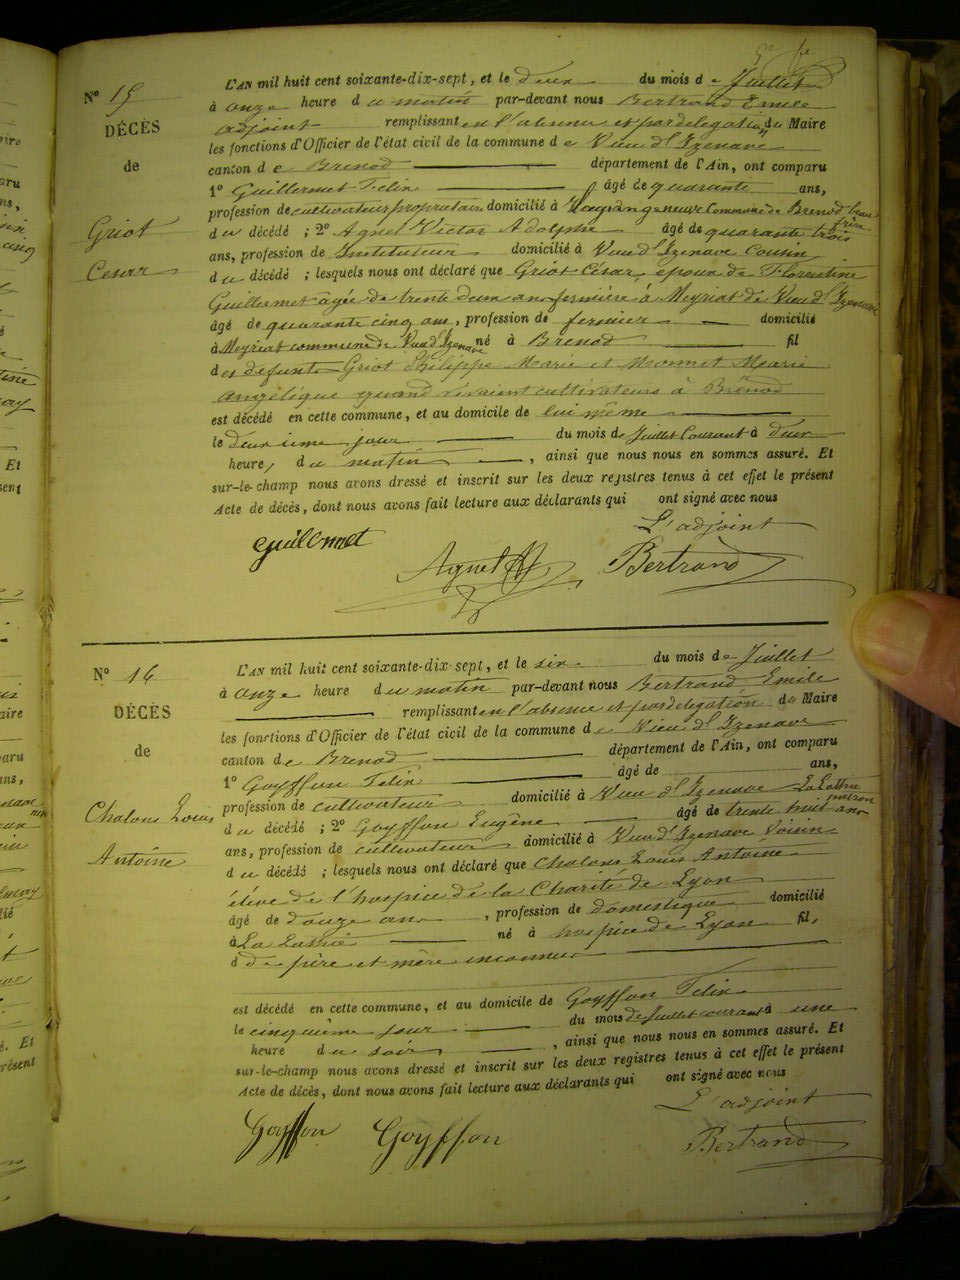 Nº 15
DÉCÈS
de
Griot
César
L'AN mil huit cent soixante-dix-sept, et le deux du mois de Juillet
à onze heure du matin par-devant nous Bertrand Emile
adjoint remplissant en l'absence et par délégation du Maire
les fonctions d'Officier de l'état civil de la commune de Vieu d'Izenave
canton de Brenod département de l'Ain, ont comparu
1º Guillermet Felix âgé de quarante ans,
profession de cultivateur propriétaire domicilié à neuve Commune de Brenod beau frère
du décédé ; 2º Agnel Victor Adolphe âgé de quarante trois
ans, profession de Instituteur domicilié à Vieu d'Izenave Cousin
du décédé ; lesquels nous ont déclaré que Griot César, époux de Florentine
Guillermet agée de trente deux ans fermière à Meyriat de Vieu d'Izenave
âgé de quarante cinq ans, profession de fermier domicilié
à Meyriat commune de Vieu d'Izenave né à Brenod fil
des defunts Griot Philippe Marie et Monnet Marie
angélique quand vivaient cultivateurs à Brénod
est décédé en cette commune, et au domicile de lui même
le deuxième jour du mois de Juillet Courant à deux
heure, du matin , ainsi que nous nous en sommes assuré. Et
sur-le-champ nous avons dressé et inscrit sur les deux registres tenus à cet effet le présent
Acte de décès, dont nous avons fait lecture aux déclarants qui ont signé avec nous
L'adjoint
Guillermet Agnel Bertrand
Nº 16
DÉCÈS
de
Chalons Louis
Antoine
L'AN mil huit cent soixante-dix-sept, et le six du mois de Juillet
à onze heure du matin par-devant nous Bertrand Emile
remplissant en l'absence et par délégation du Maire
les fonctions d'Officier de l'état civil de la commune de Vieu d'Izenave
canton de Brenod département de l'Ain, ont comparu
1º Goyffon Felix âgé de ans,
profession de cultivateur domicilié à Vieu d'Izenave patron
du décédé ; 2º Goyffon Eugène âgé de trente huit ans
ans, profession de cultivateur domicilié à Vieu d'Izenave Voisin
du décédé ; lesquels nous ont déclaré que Chalons Louis Antoine
élève de l'hospice de la Charité de Lyon
âgé de douze ans , profession de domestique domicilié
à né à hospice de Lyon fil,
d de père et mère inconnus
est décédé en cette commune, et au domicile de Goyffon Felix
le cinquième jour du mois de Juillet courant à une
heure du soir , ainsi que nous nous en sommes assuré. Et
sur-le-champ nous avons dressé et inscrit sur les deux registres tenus à cet effet le présent
Acte de décès, dont nous avons fait lecture aux déclarants qui ont signé avec nous
L'adjoint
Goyffon Goyffon Bertrand